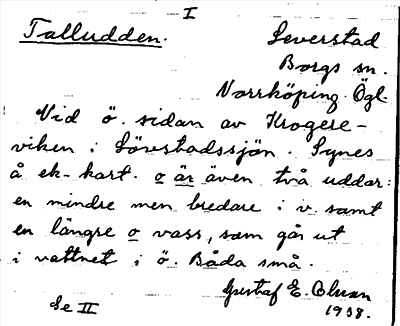 I
Talludden. Leverstad
Borgs sn.
Norrköping Ögl.
Vid ö. sidan av Krogere-
viken i Lövstadssjön. Synes
å ek-kart. o är även två uddar:
en mindre men bredare i v. samt
en längre o vass, som går ut
i vattnet i ö. Båda små.
Gustaf E.
Se II 1938.